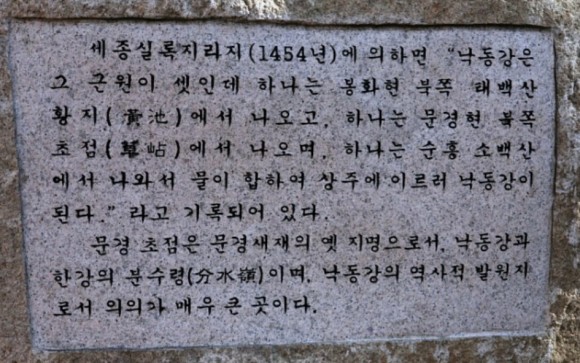 세종실록지리지(1454년)에 의하면 "낙동강은
그 근원이 셋인데 하나는 봉화현 북쪽 태백산
황지(黃池)에서 나오고, 하나는 문경현 북쪽
초점(草岾)에서 나오며, 하나는 순흥 소백산
에서 나와서 물이 합하여 상주에 이르러 낙동강이
된다." 라고 기록되어 있다.
문경 초점은 문경새재의 옛 지명으로서, 낙동강과
한강의 분수령(分水嶺)이며, 낙동강의 역사적 발원지
로서 의의가 매우 큰 곳이다.